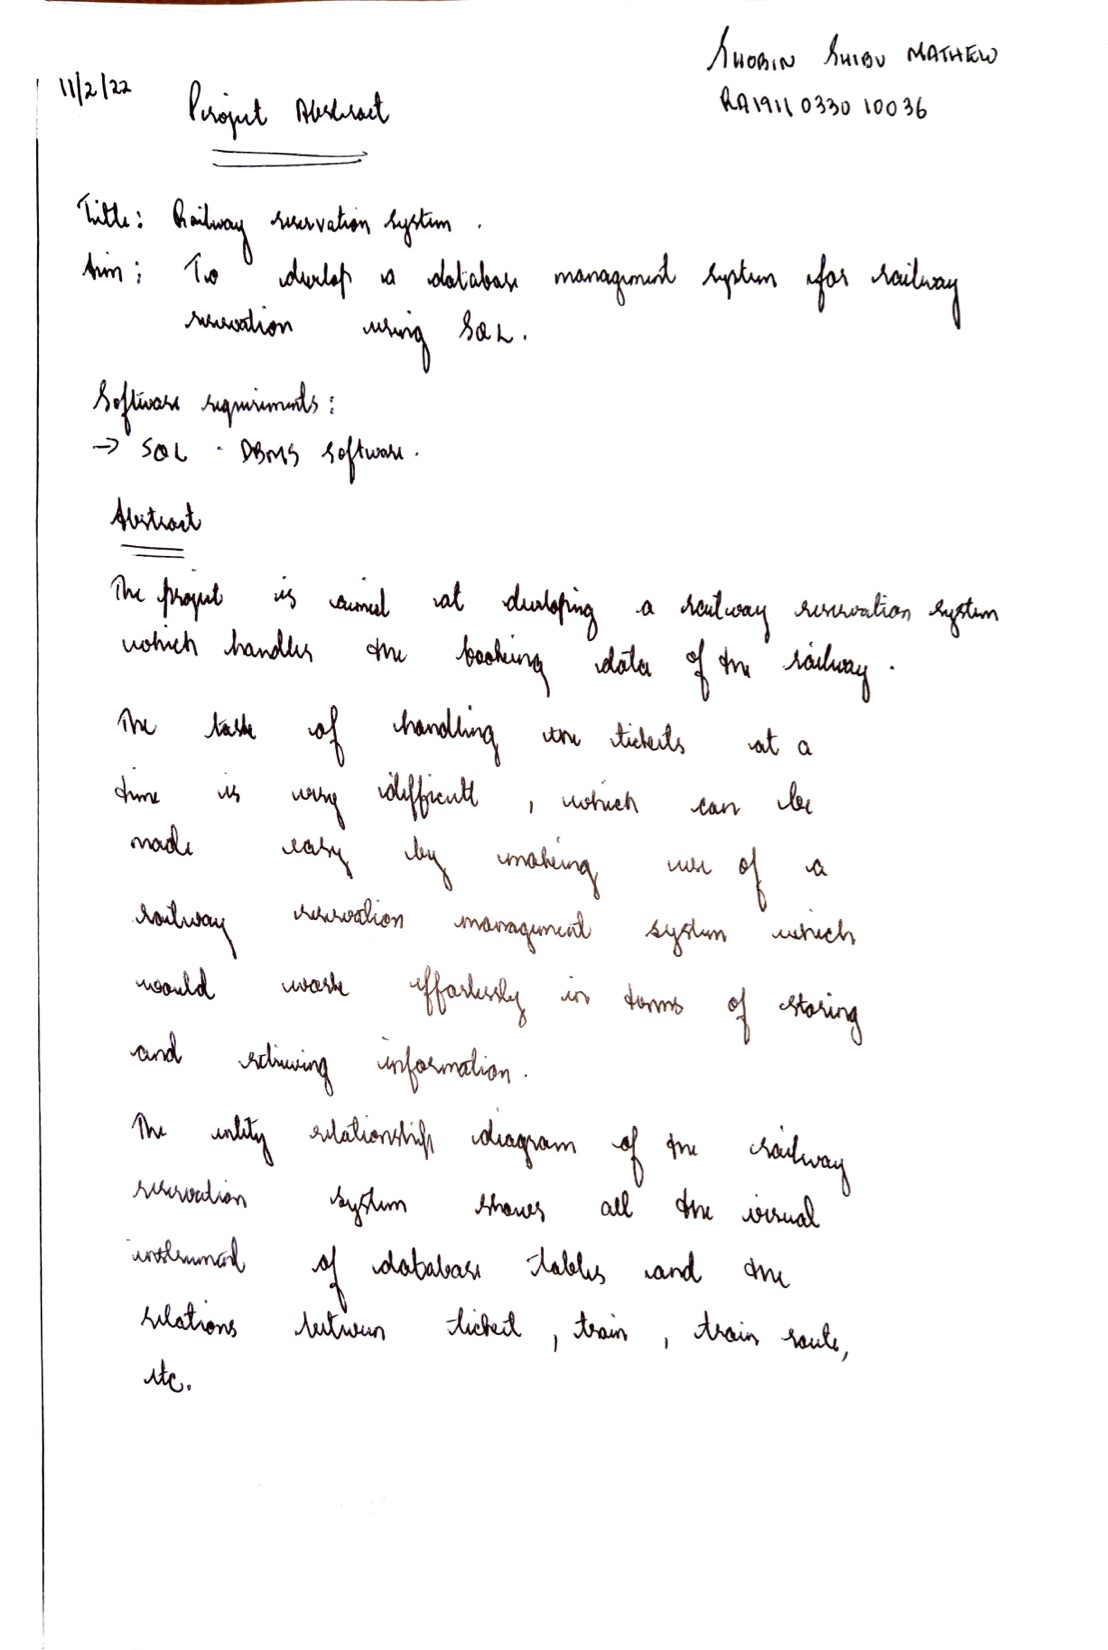 SHOBIN SHIBU MATHEW
11/2/22
RA1911033010036
Project Abstract
Title: Railway reservation system.
Aim: To develop a database management system for railway
reservation using SQL.
Software requirements:
→ SQL - DBMS software.
Abstract
The project is aimed at developing a railway reservation system
which handles the booking data of the railway.
The task of handling the tickets at a
time is very difficult, which can be
made easy by making use of a
railway reservation management system which
would work effortlessly in terms of storing
and retrieving information.
The entity relationship diagram of the railway
reservation system shows all the visual
instrument of database tables and the
relations between ticket, train, train route,
etc.